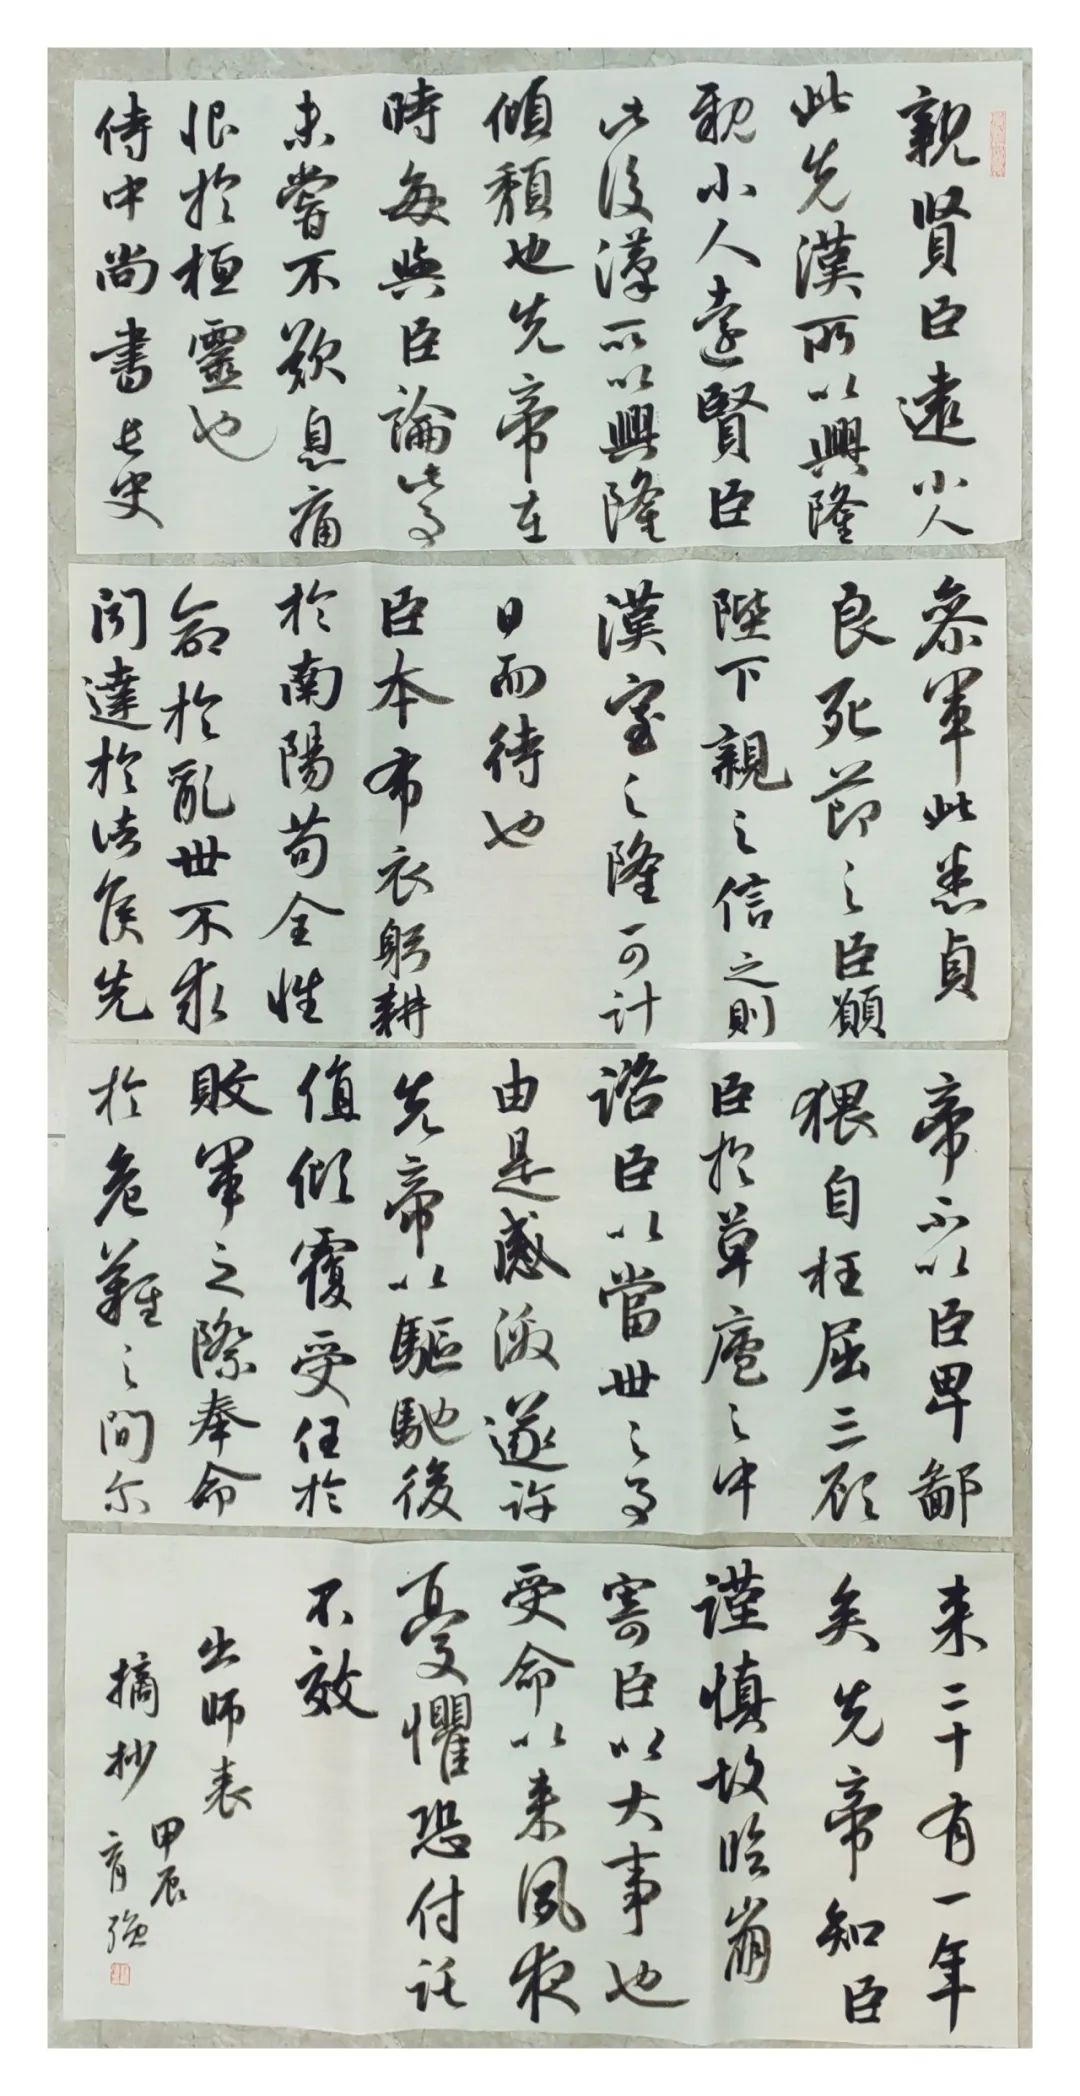 親賢臣遠小人
此先漢所以興隆
親小人遠賢臣
此後漢所以興隆
傾頹也先帝在
時每與臣論此事
未嘗不歎息痛
恨於桓靈也
侍中尚書長史
參軍此悉貞
良死節之臣願
陛下親之信之則
漢室之隆可計
日而待也
臣本布衣躬耕
於南陽苟全性
命於亂世不求
聞達於諸侯先
帝不以臣卑鄙
猥自枉屈三顧
臣於草廬之中
諮臣以當世之事
由是感激遂許
先帝以驅馳後
值傾覆受任於
敗軍之際奉命
於危難之間尔
来二十有一年
矣先帝知臣
謹慎故臨崩
寄臣以大事也
受命以来夙夜
憂懼恐付託
不效
出師表
摘抄
甲辰
育強